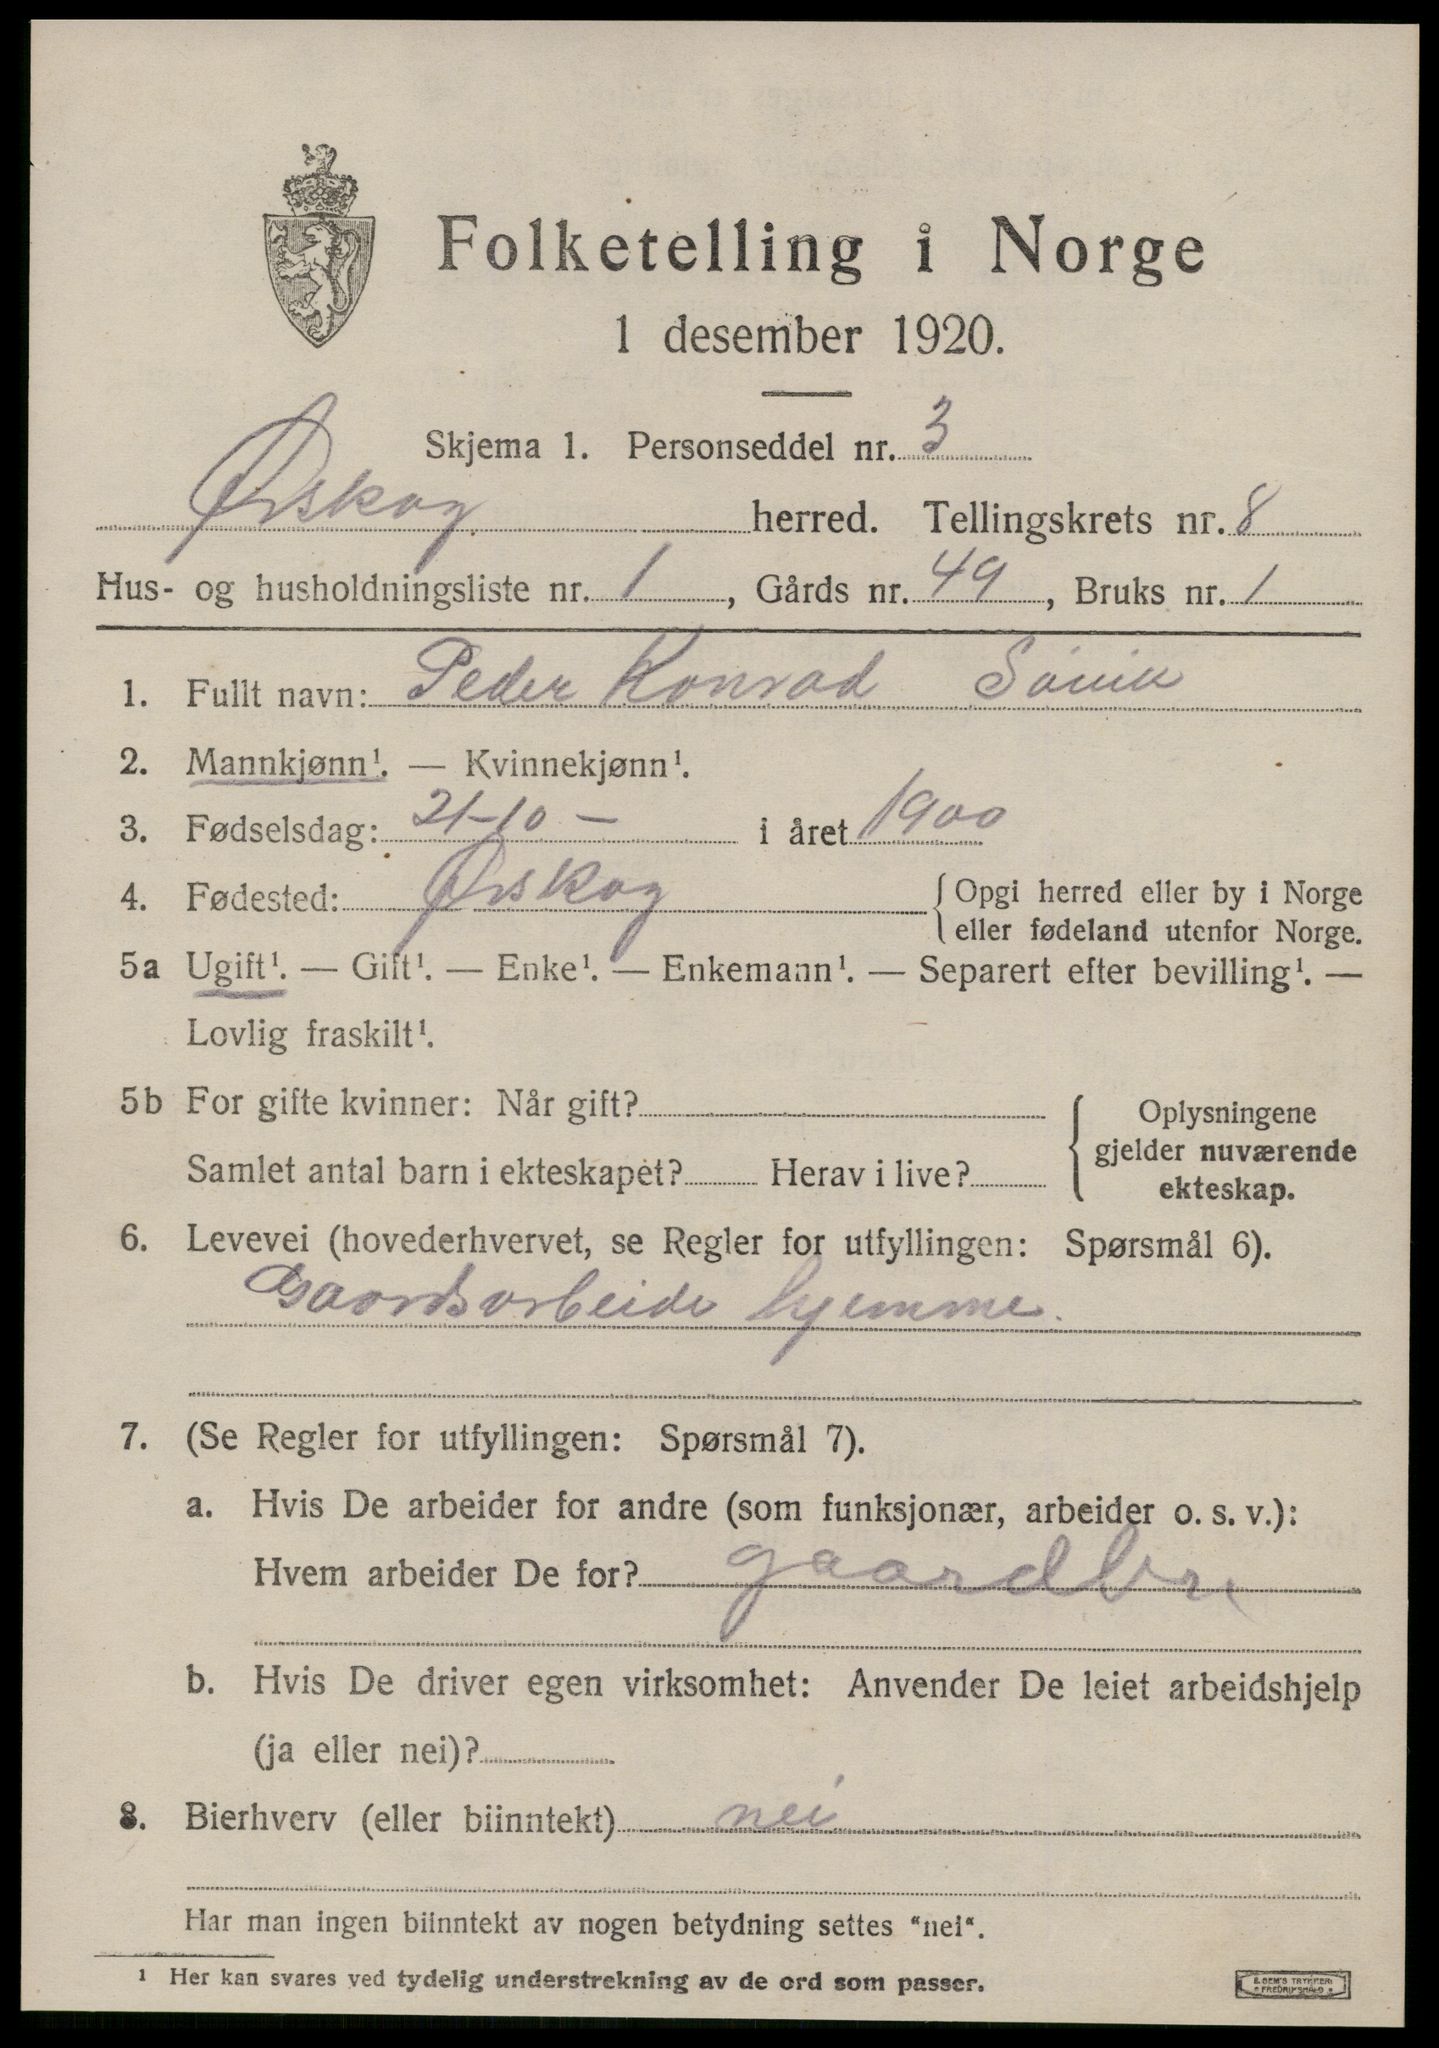 Folketelling i Norge
1 desember 1920.
Skjema 1. Personseddel nr. 3
Ørskog herred. Tellingskrets nr. 8
Hus- og husholdningsliste nr. 1, Gårds nr. 49, Bruks nr. 1
1. Fullt navn: Peder Konrad
2. Mannkjønn¹. — Kvinnekjønn¹.
3. Fødselsdag: 21-10 - i året 1900
4. Fødested: Ørskog { Opgi herred eller by i Norge
eller fødeland utenfor Norge.
5a Ugift¹. — Gift¹. — Enke¹. — Enkemann¹. — Separert efter bevilling¹. —
Lovlig fraskilt¹.
5b For gifte kvinner: Når gift?
Samlet antal barn i ekteskapet? Herav i live?
{ Oplysningene
gjelder nuværende
ekteskap.
6. Levevei (hovederhvervet, se Regler for utfyllingen: Spørsmål 6).
Gaardsarbeide hjemme.
7. (Se Regler for utfyllingen: Spørsmål 7).
a. Hvis De arbeider for andre (som funksjonær, arbeider o. s. v.):
Hvem arbeider De for? gaardbr.
b. Hvis De driver egen virksomhet: Anvender De leiet arbeidshjelp
(ja eller nei)?
8. Bierhverv (eller biinntekt) nei
Har man ingen biinntekt av nogen betydning settes "nei".
¹ Her kan svares ved tydelig understrekning av de ord som passer.
E. SEM'S TRYKKERI
FREDRIKSHALD